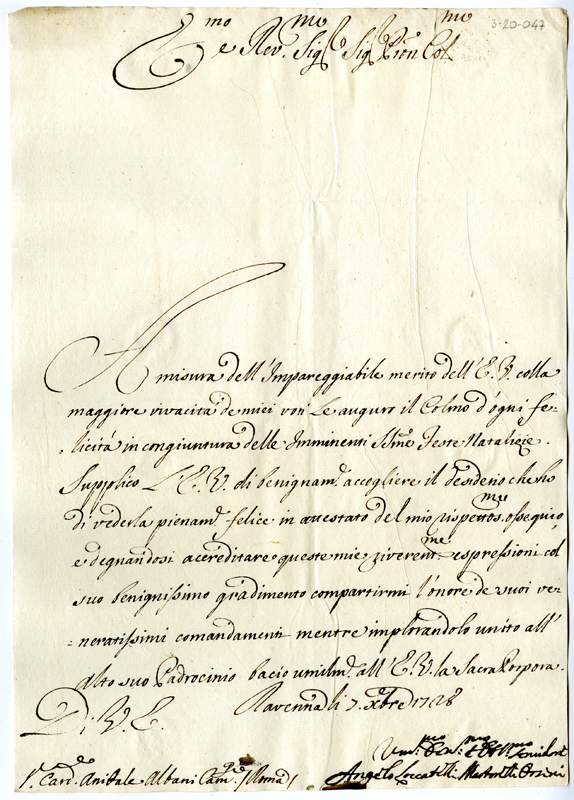 3-20-047
E.mo e Rev.mo Sig.r Sig.r Pron Col.mo
A misura dell'Impareggiabile merito dell'E.V. colla
maggiore vivacità de miei voti Le auguro il Colmo d'ogni fe=
licità in congiuntura delle Imminenti SS.me Feste Natalizie.
Supplico L'E.V. di benignam.e accogliere il desiderio che ho
di vederla pienam.e felice in attestato del mio rispettos.mo ossequio,
e degnandosi accreditare queste mie riverent.me espressioni col
suo benignissimo gradimento compartirmi l'onore de suoi ve=
=neratissimi comandamenti mentre implorandolo unito all'
alto suo Padrocinio bacio umilm.e all'E.V. la Sacra Porpora.
Di V. E. Ravenna li 7. Xbre 1728
Um.mo Dev.mo
S.r Card. Anibale Albani Cam. Roma
Angelo Loccatelli Martorelli Orsini